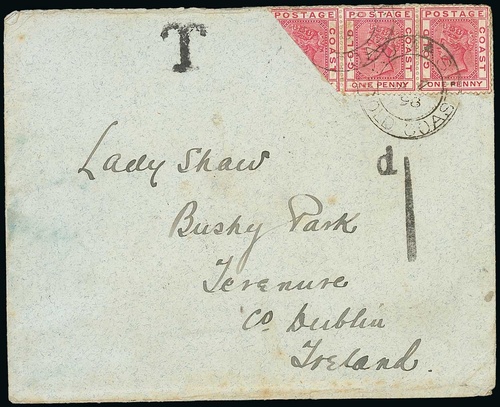 T
POSTAGE POSTAGE POSTAGE
COAST GOLD COAST GOLD COAST
ONE PENNY ONE PENNY
98
GOLD COAST
Lady Shaw
d
1
Bushy Park
Terenure
Co Dublin
Ireland.